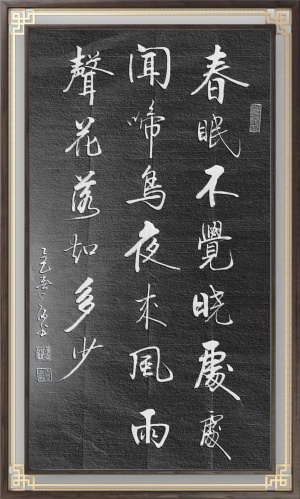 春眠不覺晓處處
聞啼鳥夜来風雨
聲花落知多少